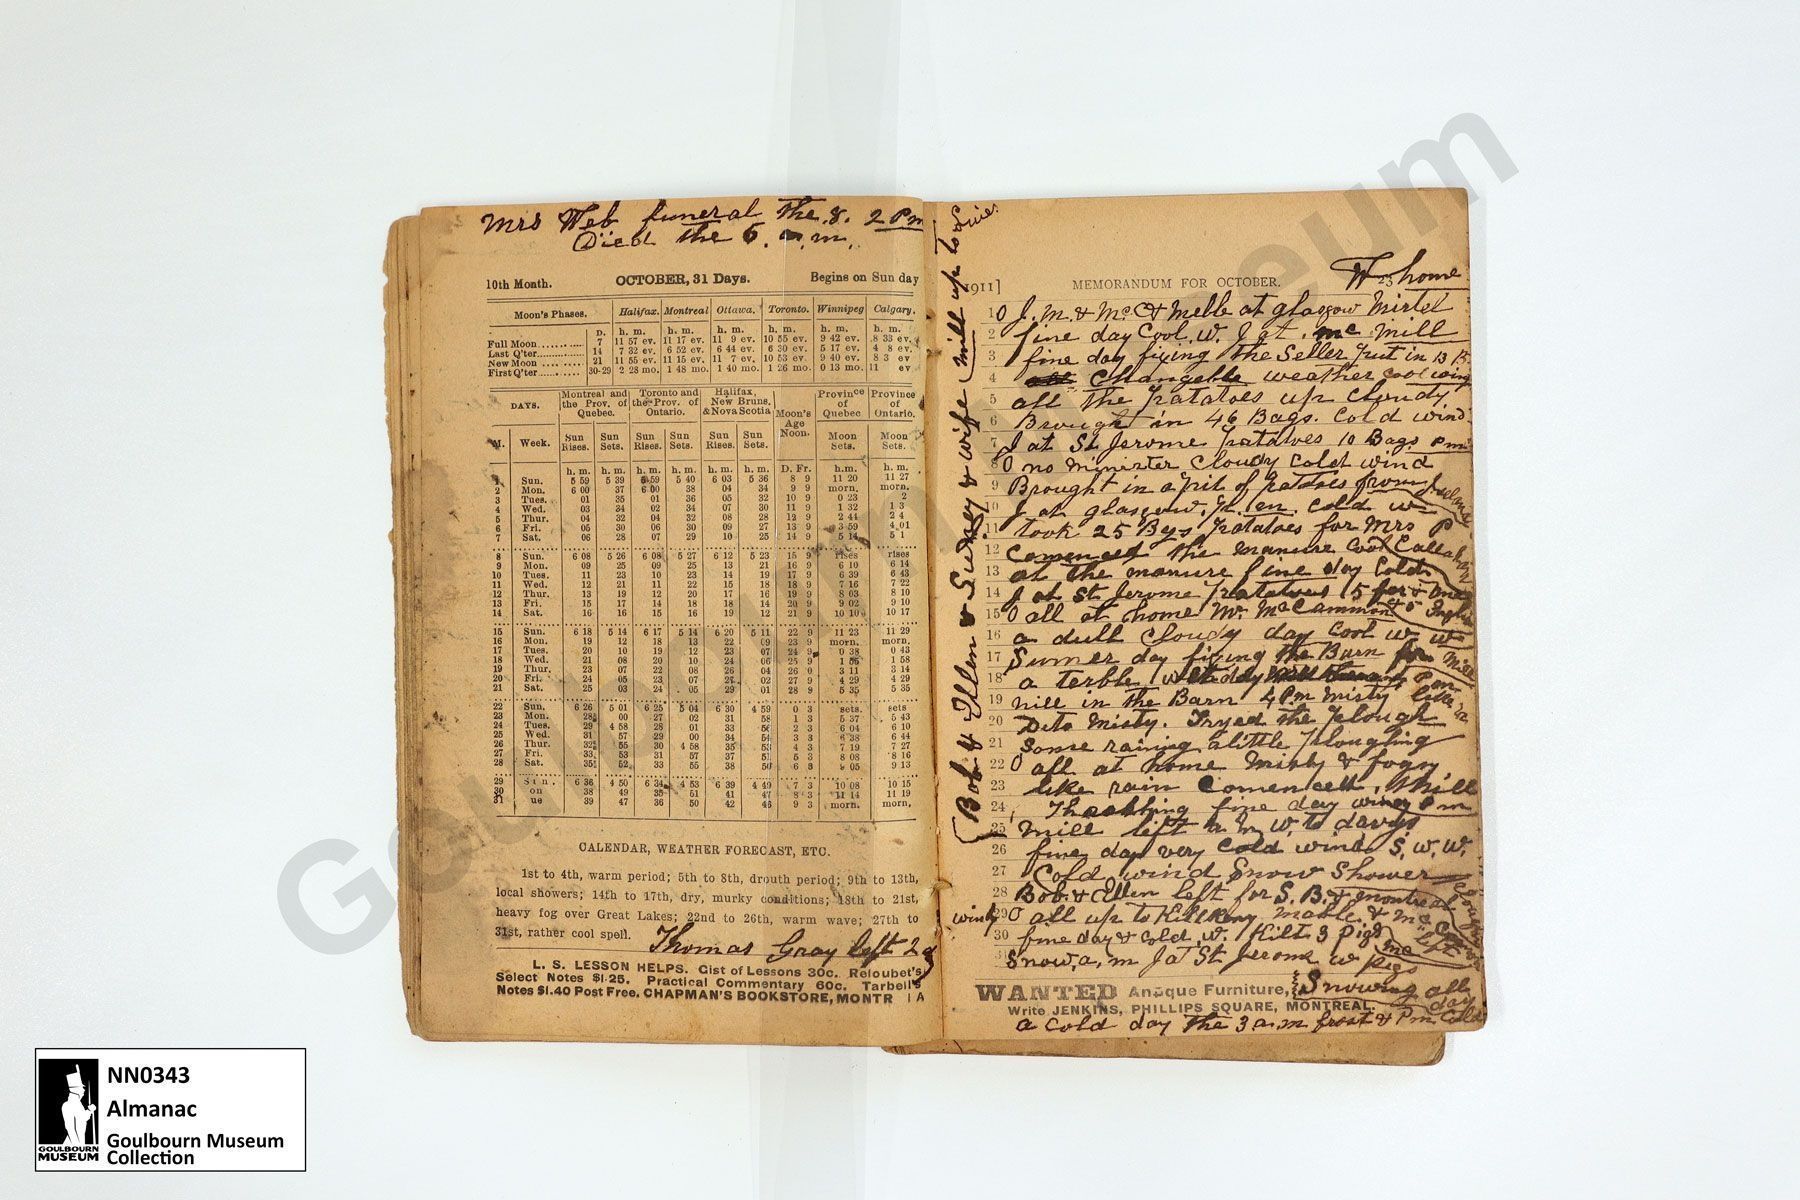 Mrs Web funeral the 8. 2 Pm
Died the 6. a.m.
10th Month. OCTOBER, 31 Days. Begins on Sunday
Moon's Phases. Halifax. Montreal Ottawa. Toronto. Winnipeg Calgary.
D. h. m. h. m. h. m. h. m. h. m. h. m.
Full Moon 7 11 57 ev. 11 17 ev. 11 9 ev. 10 55 ev. 9 42 ev. 8 33 ev.
Last Q'ter 14 7 32 ev. 6 52 ev. 6 44 ev. 6 30 ev. 5 17 ev. 4 8 ev.
New Moon 21 11 55 ev. 11 15 ev. 11 7 ev. 10 53 ev. 9 40 ev. 8 3 ev
First Q'ter 30-29 2 28 mo. 1 48 mo. 1 40 mo. 1 26 mo. 0 13 mo. 11 ev
DAYS. Montreal and the Prov. of Quebec. Toronto and the Prov. of Ontario. Halifax, New Bruns. & Nova Scotia Moon's Age Noon. Province of Quebec Province of Ontario.
M. Week. Sun Rises. Sun Sets. Sun Rises. Sun Sets. Sun Rises. Sun Sets. Moon Sets. Moon Sets.
h. m. h. m. h. m. h. m. h. m. h. m. D. Fr. h.m. h. m.
1 Sun. 5 59 5 39 5 59 5 40 6 03 5 36 8 9 11 20 11 27
2 Mon. 6 00 37 6 00 38 04 34 9 9 morn. morn.
3 Tues. 01 35 01 36 05 32 10 9 0 23 2
4 Wed. 03 34 02 34 07 30 11 9 1 32 1 3
5 Thur. 04 32 04 32 08 28 12 9 2 44 2 4
6 Fri. 05 30 06 30 09 27 13 9 3 59 4 01
7 Sat. 06 28 07 29 10 25 14 9 5 14 5 1
8 Sun. 6 08 5 26 6 08 5 27 6 12 5 23 15 9 rises rises
9 Mon. 09 25 09 25 13 21 16 9 6 10 6 14
10 Tues. 11 23 10 23 14 19 17 9 6 39 6 43
11 Wed. 12 21 11 22 15 18 18 9 7 16 7 22
12 Thur. 13 19 12 20 16 17 19 9 8 03 8 10
13 Fri. 15 17 14 18 18 14 20 9 9 02 9 10
14 Sat. 16 16 15 16 19 12 21 9 10 10 10 17
15 Sun. 6 18 5 14 6 17 5 14 6 20 5 11 22 9 11 23 11 29
16 Mon. 19 12 18 13 22 09 23 9 morn. morn.
17 Tues. 20 10 19 12 23 07 24 9 0 38 0 43
18 Wed. 21 08 20 10 24 06 25 9 1 55 1 58
19 Thur. 23 07 22 08 26 04 26 0 3 11 3 14
20 Fri. 24 05 23 07 27 02 27 9 4 29 4 29
21 Sat. 25 03 24 05 29 01 28 9 5 35 5 35
22 Sun. 6 26 5 01 6 25 5 04 6 30 4 59 0 3 sets. sets
23 Mon. 28 00 27 02 31 58 1 3 5 37 5 43
24 Tues. 29 4 58 28 01 33 56 2 3 6 04 6 10
25 Wed. 31 57 29 00 34 54 3 3 6 38 6 44
26 Thur. 32 55 30 4 58 35 53 4 3 7 19 7 27
27 Fri. 33 53 31 57 37 51 5 3 8 08 8 16
28 Sat. 35 52 33 55 38 50 6 3 9 05 9 13
29 Sun. 6 36 4 50 6 34 4 53 6 39 4 49 7 3 10 08 10 15
30 on 38 49 35 51 41 47 8 3 11 14 11 19
31 ue 39 47 36 50 42 46 9 3 morn. morn.
CALENDAR, WEATHER FORECAST, ETC.
1st to 4th, warm period; 5th to 8th, drouth period; 9th to 13th,
local showers; 14th to 17th, dry, murky conditions; 18th to 21st,
heavy fog over Great Lakes; 22nd to 26th, warm wave; 27th to
31st, rather cool spell.
Thomas Gray left 2
L. S. LESSON HELPS. Cist of Lessons 30c. Reloubet's
Select Notes $1.25. Practical Commentary 60c. Tarbell's
Notes $1.40 Post Free. CHAPMAN'S BOOKSTORE, MONTR A
Bob & Ellen & Sidney & wife mill up to Line
W 23 home
1911] MEMORANDUM FOR OCTOBER.
1 O J. M. & Mc & Meble at glasgow Mirtel
2 fine day Cool. W. J at Mc Mill
3 fine day fixing the Seller put in 13 B.
4 Changeble weather cool wing
5 all the Patatoes up Cloudy
6 Brought in 46 Bags. Cold wind
7 J at St Jerome Patatoes 10 Bags Pm
8 O no Minister Cloudy Cold wind
9 Brought in a pit of Patatoes from
10 J at glasgow. Cold w
11 took 25 Bgs Patatoes for Mrs P Callahan
12 Comenced the manure Cool
13 at the manure fine day Cold
14 J at St Jerome Patatoes 15 for
15 O all at home Mr McCammon
16 a dull Cloudy day Cool w. w
17 Sumer day fixing the Barn
18 a terble wet day Pm
19 mill in the Barn 4 Pm Misty like
20 Dito Misty. Tryed the Plough
21 Some raining alittle Ploughing
22 O all at home Misty & fogy
23 like rain Comenced. Mill
24 Thrashing fine day winey Pm
25 Mill left a. m. W. to davys
26 fine day very cold wind S. W. W.
27 Cold wind Snow Shower
28 Bob & Ellen left for S. B. & montreal
windy 29 O all up to Killkeny Mable & Mc
30 fine day & cold. W. Kilt 3 Pigs
31 Snow. a. m J at St Jerome w Pigs
Snowing all day
WANTED Antique Furniture,
Write JENKINS, PHILLIPS SQUARE, MONTREAL.
a cold day the 3 a.m frost & Pm Cold
NN0343
Almanac
Goulbourn Museum
Collection
GOULBOURN
MUSEUM
Goulbourn Museum